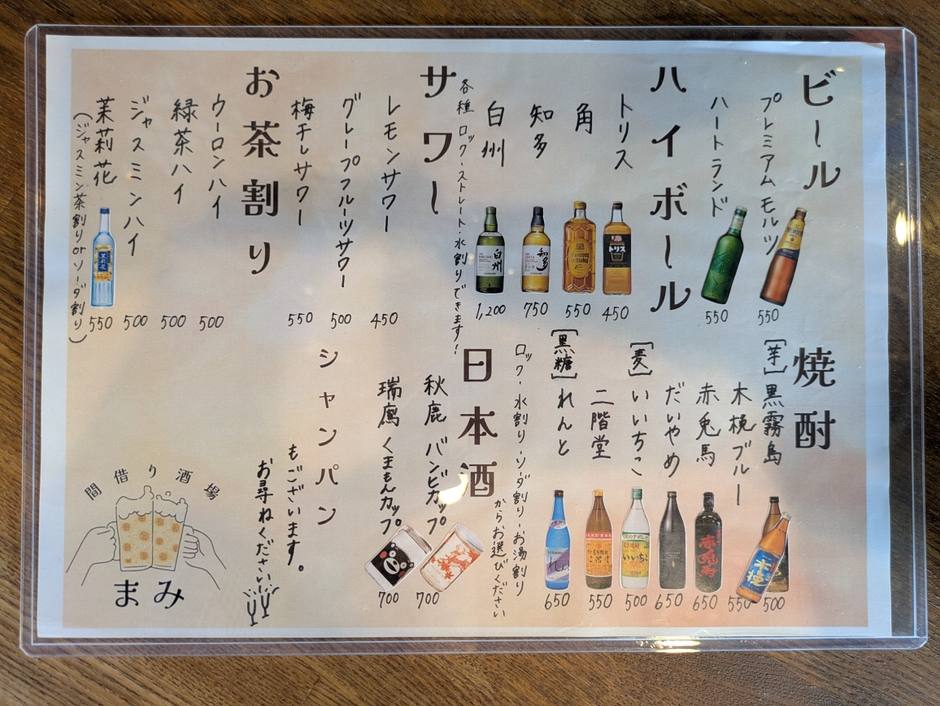 ビール
プレミアムモルツ
550
ハートランド
550
ハイボール
トリス
450
角
550
知多
750
白州
1,200
各種 ロック・ストレート・水割りできます!
サワー
レモンサワー
450
グレープフルーツサワー
500
梅干しサワー
550
お茶割り
ウーロンハイ
500
緑茶ハイ
500
ジャスミンハイ
500
茉莉花
(ジャスミン茶割りorソーダ割り)
550
焼酎
[芋]
黒霧島
500
木挽ブルー
550
赤兎馬
650
だいやめ
650
[麦]
いいちこ
500
二階堂
550
[黒糖]
れんと
650
ロック・水割り・ソーダ割り・お湯割り
からお選びください
日本酒
秋鹿 バンビカップ
700
瑞鷹 くまもんカップ
700
シャンパン
もございます。
お尋ねください
間借り酒場
まみ
白州
知多
トリス
茉莉花
木挽
赤兎馬
いいちこ